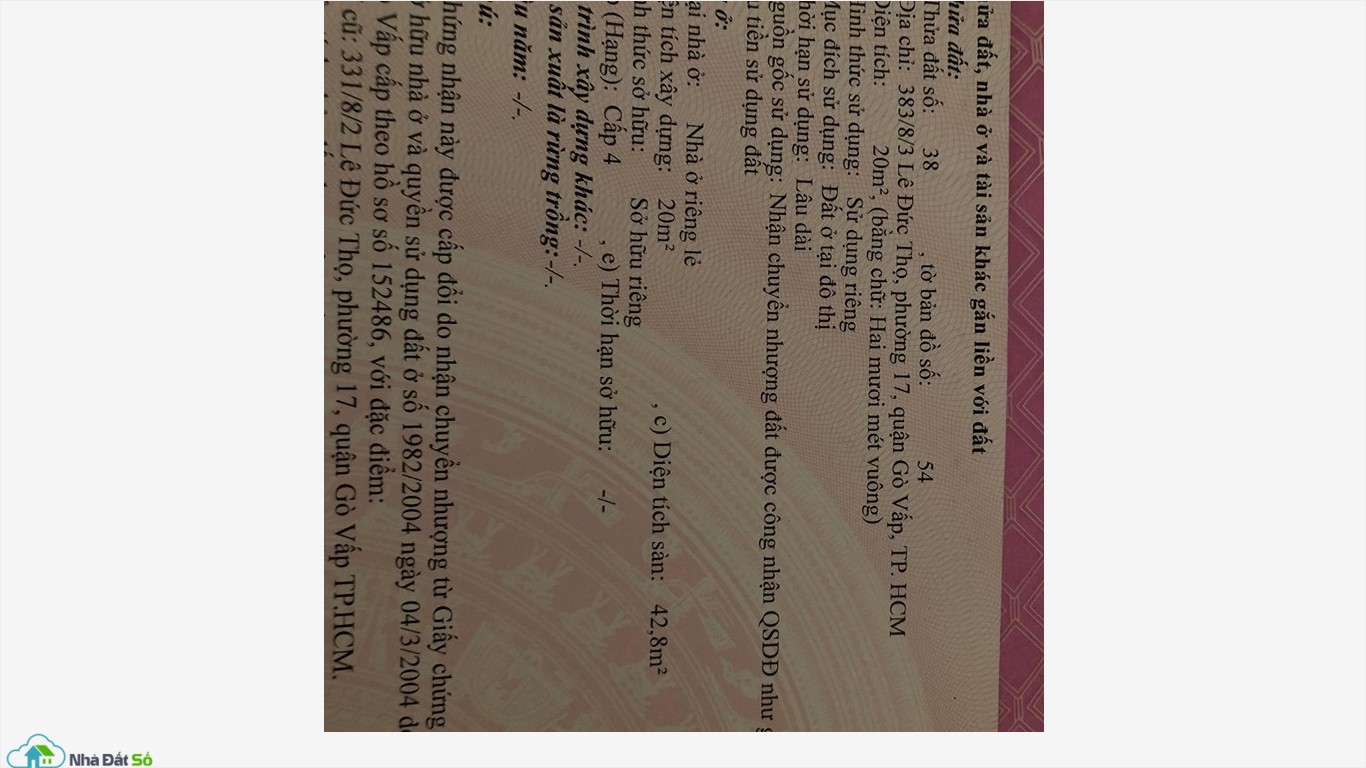 ửa đất, nhà ở và tài sản khác gắn liền với đất
hửa đất:
Thửa đất số: 38 , tờ bản đồ số: 54
Địa chỉ: 383/8/3 Lê Đức Thọ, phường 17, quận Gò Vấp, TP. HCM
Diện tích: 20m², (bằng chữ: Hai mươi mét vuông)
Hình thức sử dụng: Sử dụng riêng
Mục đích sử dụng: Đất ở tại đô thị
hời hạn sử dụng: Lâu dài
guồn gốc sử dụng: Nhận chuyển nhượng đất được công nhận QSDĐ như
u tiền sử dụng đất
ở:
ại nhà ở: Nhà ở riêng lẻ
ện tích xây dựng: 20m² , c) Diện tích sàn: 42,8m²
nh thức sở hữu: Sở hữu riêng
(Hạng): Cấp 4 , e) Thời hạn sở hữu: -/-
trình xây dựng khác: -/-.
sản xuất là rừng trồng:-/-.
u năm: -/-.
ú:
hứng nhận này được cấp đổi do nhận chuyển nhượng từ Giấy chứng
hữu nhà ở và quyền sử dụng đất ở số 1982/2004 ngày 04/3/2004 d
Vấp cấp theo hồ sơ số 152486, với đặc điểm:
cũ: 331/8/2 Lê Đức Thọ, phường 17, quận Gò Vấp TP.HCM.
Nhà Đất Số